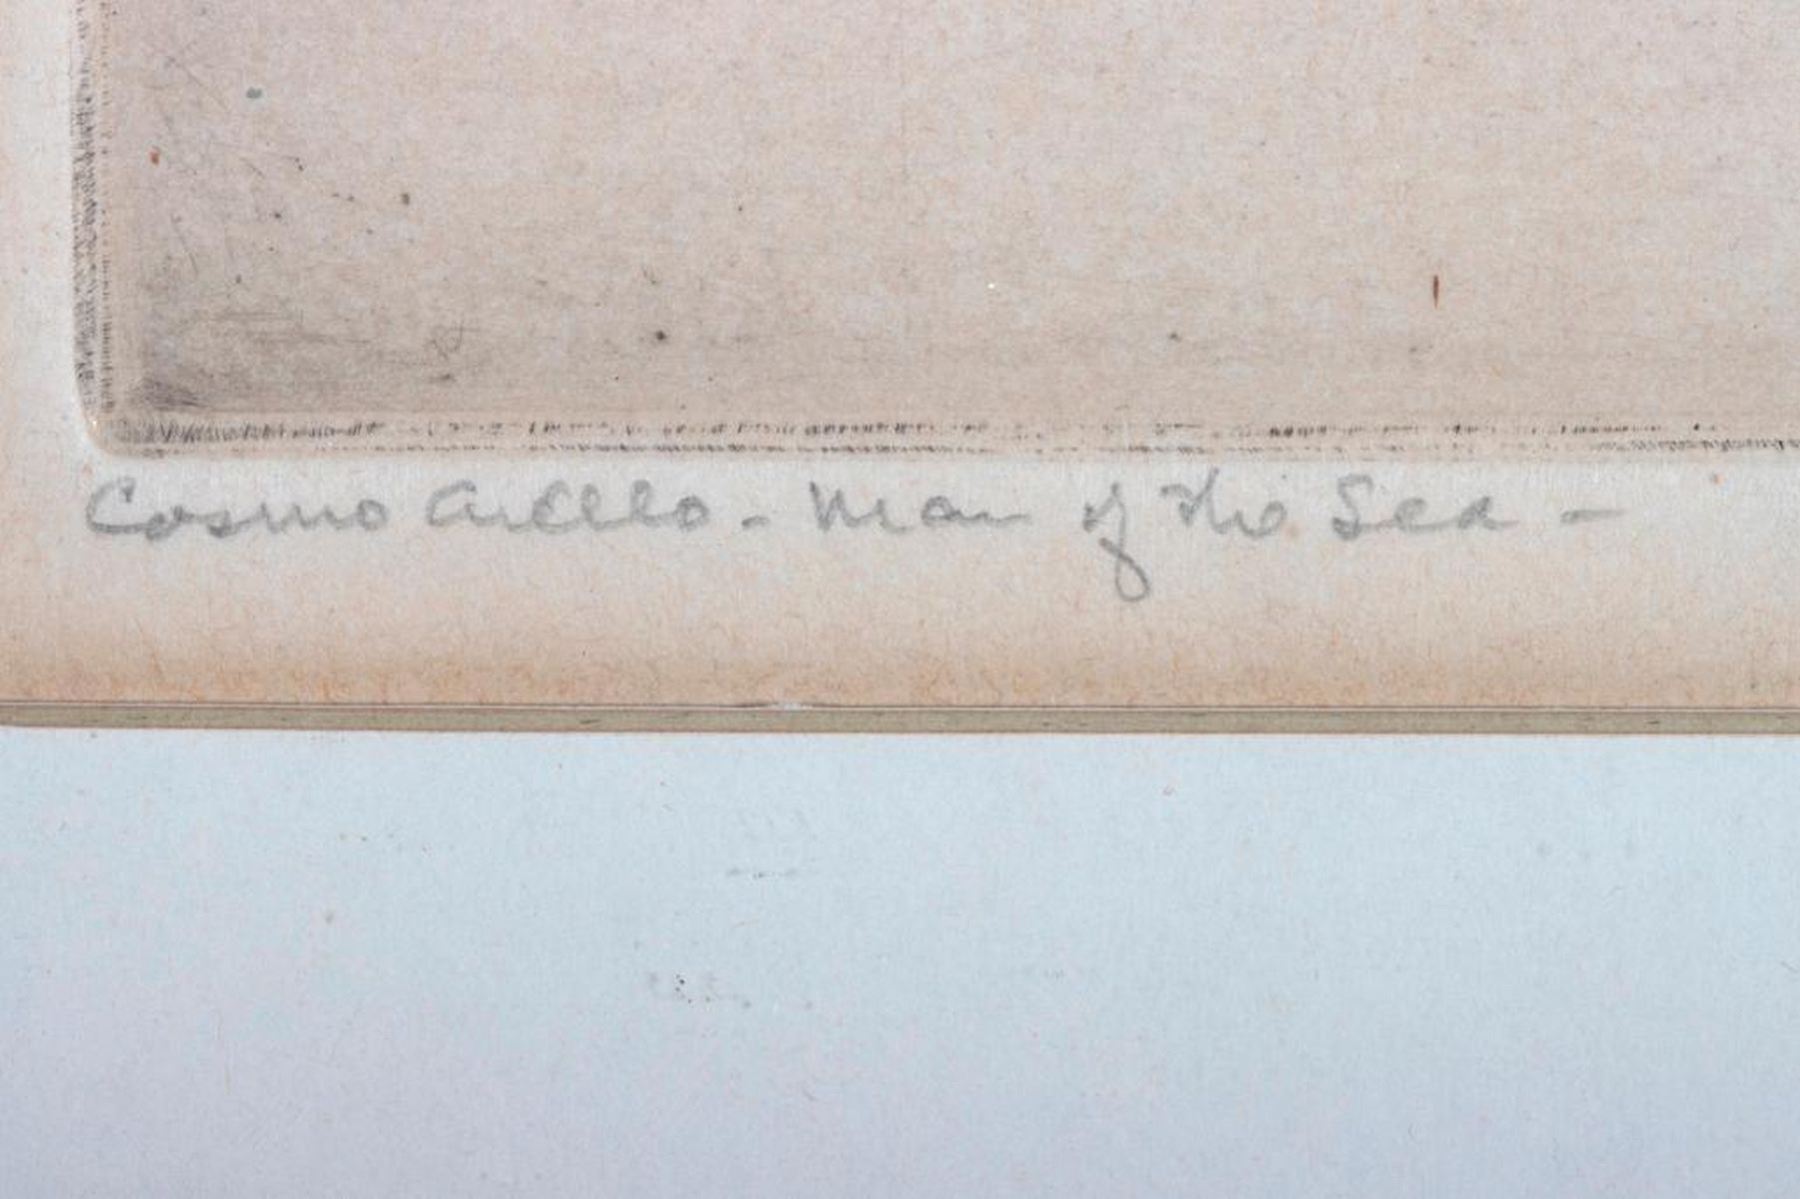 Cosmo Aiello - Man of the Sea -